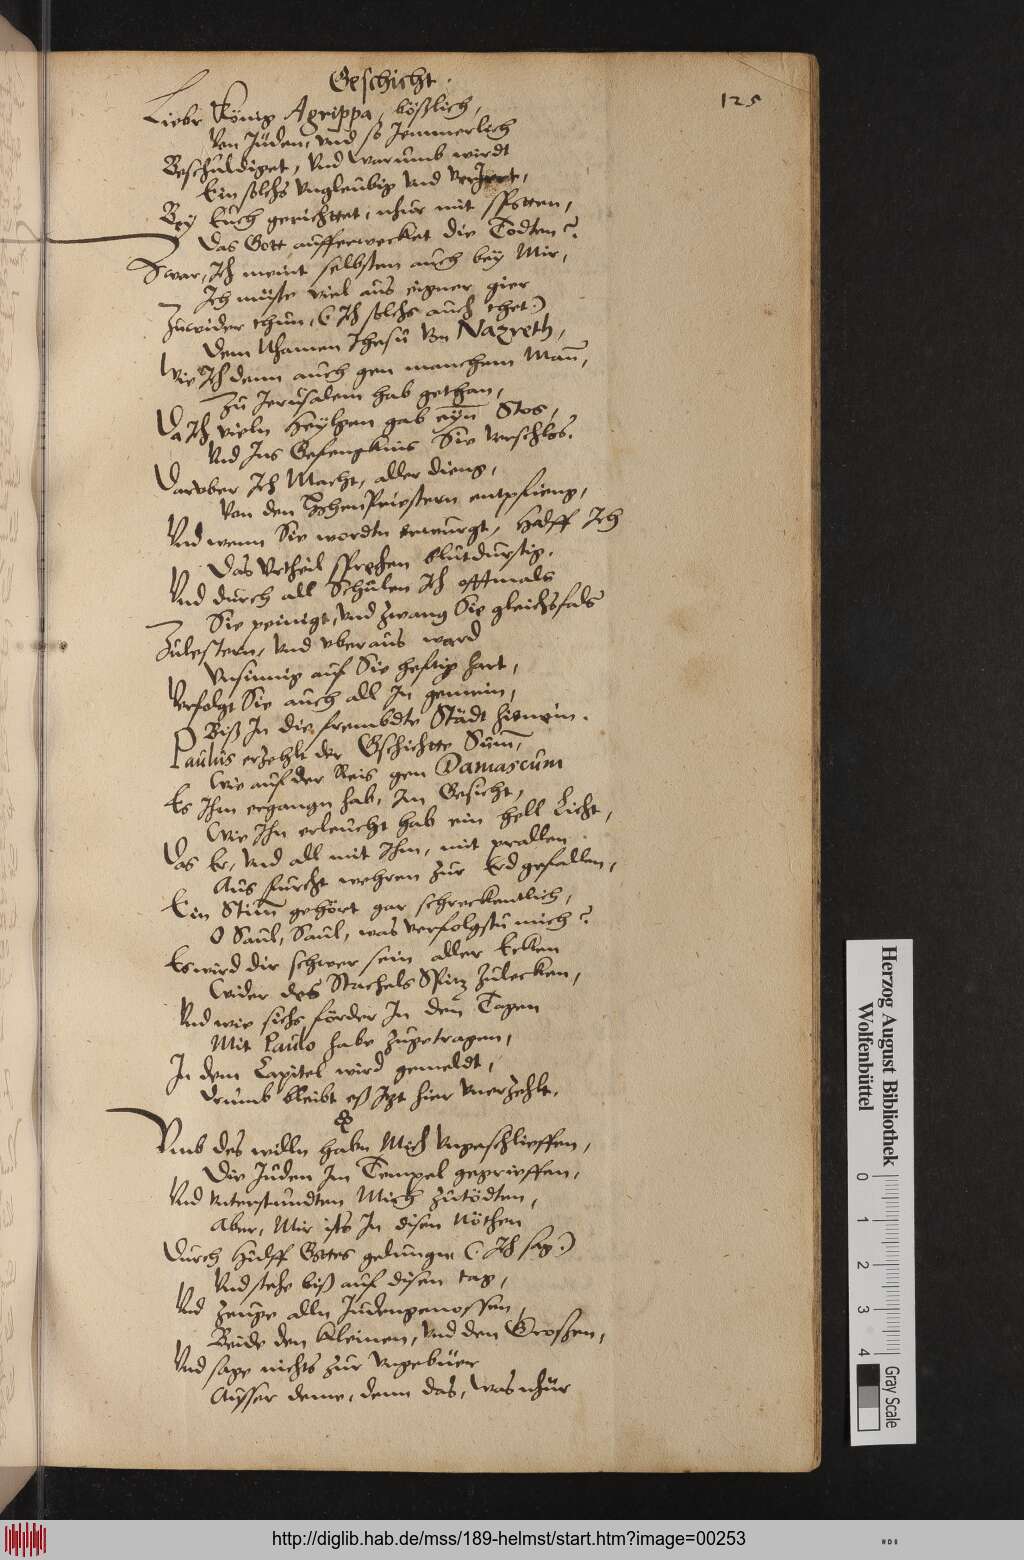 Geschicht.
125
Lieber König Agrippa, bößlich,
Von Jüden, vnd so Jemmerlich
Beschuldiget, Vnd Warumb wirdt
Ein solchs vngleubig vnd
Bey Euch gerichttet, nhur mit spotten,
Das Gott aufferwecket die Todten?
Zwar, Ich meint selbsten auch bey Mir,
Ich müste viel aus eigner gier
Zuwider thun, (Ich solchs auch thet)
Dem Nhamen Jhesu Von Nazreth,
Wie Ich denn auch gen manchem Mañ,
Zu Jerusalem hab gethan,
Da Ich vieln Heyligen gab eyn Stos,
Vnd Ins Gefengknis Sie verschlos.
Daruber Ich Macht, aller dieng,
Von den HohenPriestern entpfieng,
Vnd wenn Sie wordtn erwurgt, Halff Ich
Das Vrtheil sprechen blutdurstig.
Vnd durch all Schulen Ich offtmals
Sie peinigt, vnd zwang Sie gleichsfals
Zulestern, Vnd vberaus ward
Vnsinnig auf Sie hefftig hart,
Verfolgt Sie auch all In gemein,
Biß In die frembdte Städt hienein.
Paulus erzehlt der Gschichte Sum̃,
Wie auf der Reis gen Damascum
Es Ihm ergangn hab, Im Gesicht,
Wie Ihn erleucht hab ein hell Licht,
Das Er, Vnd all mit Ihm, mit prallen
Aus furcht wehren zur Erd gefallen,
Ein Stim̃ gehört gar schreckentlich,
O Saul, Saul, was verfolgstu mich?
Es wird dir schwer sein aller Ecken
Wider des Stachels Spitz zulecken,
Vnd wie sichs förder In den Tagen
Mit Paulo habe zugetragen,
In dem Capitel wird gemeldt,
Drumb bleibt eß Itzt hier vnerzehlt.
Vmb des willn habn Mich vngeschlieffen,
Die Juden Im Tempel gegrieffen,
Vnd vnterstundten Mich zutödten,
Aber, Mir ists In disen Nöthen
Durch Hulff Gottes gelungen (Ich sag)
Vnd stehe biß auf disen tag,
Vnd zeuge alln Judengenossen,
Beide den Kleinen, Vnd den Grossen,
Vnd sage nichts zur vngebüer
Ausser deme, denn das, Was nhur
Herzog August Bibliothek
Wolfenbüttel
0 1 2 3 4
Gray Scale
http://diglib.hab.de/mss/189-helmst/start.htm?image=00253